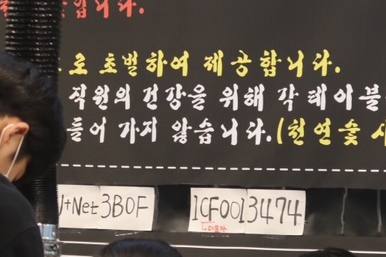 입니다.
로 초벌하여 제공합니다.
직원의 건강을 위해 각 테이블
들어 가지 않습니다. (천연숯 사
U+Net3B0F
1CF0013474